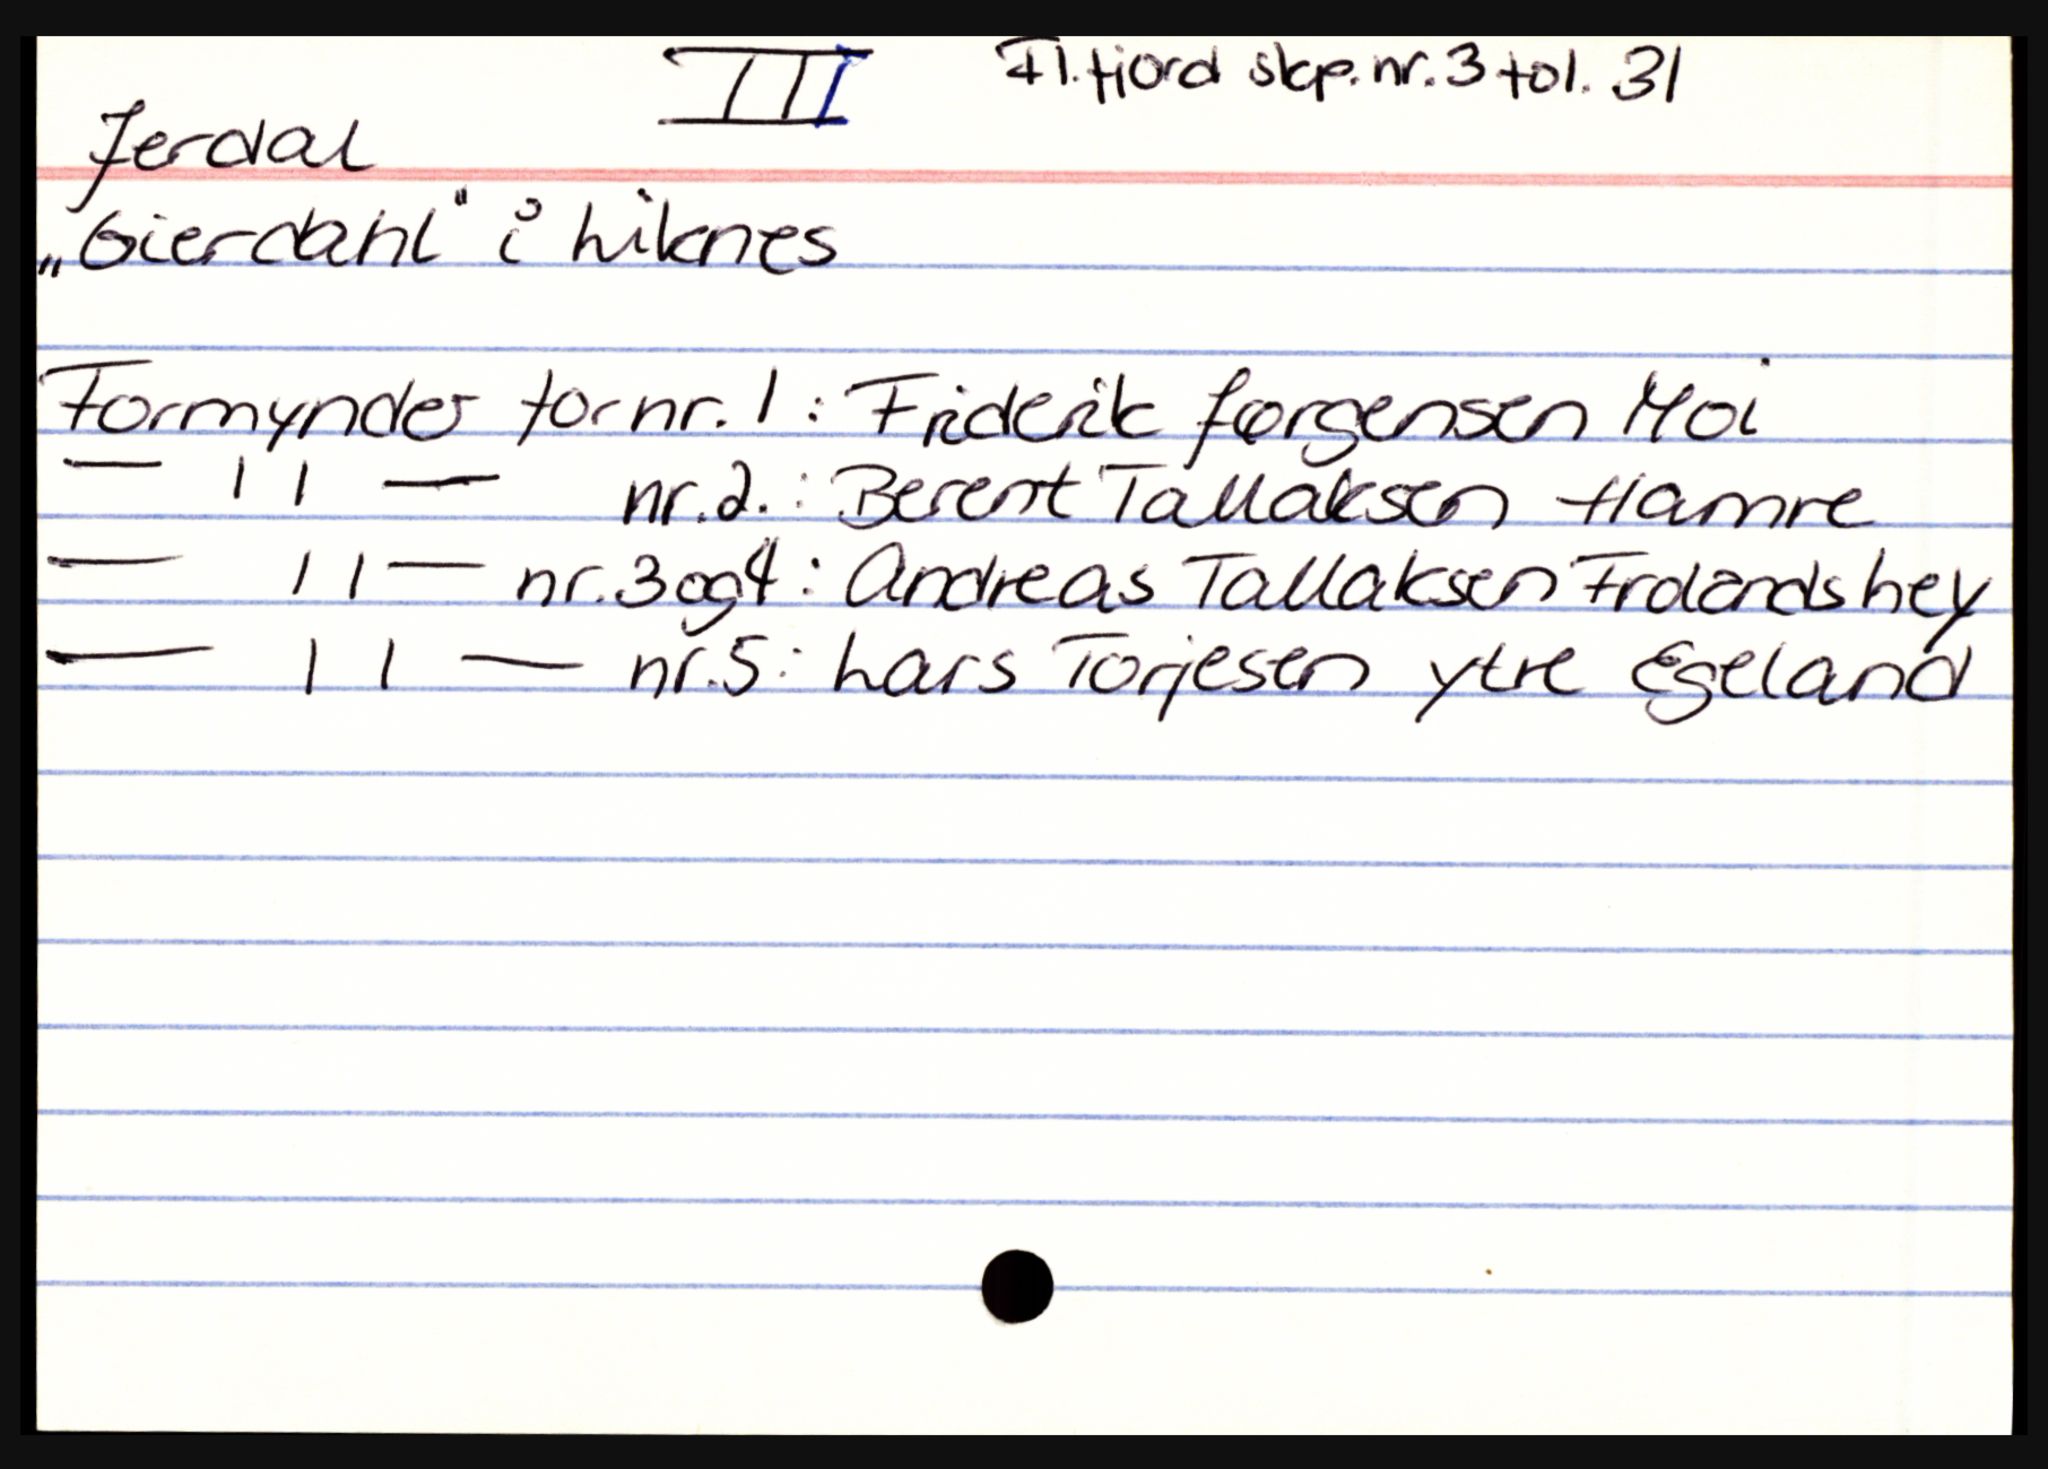 III Fl.fjord skp.nr.3 fol. 31
Jerdal
„Gierdahl" i Liknes
Formynder for nr. 1 : Friderik Jørgensen Moi
— 11 — nr.2. : Berent Tallaksen Hamre
— 11 — nr.3 og 4 : Andreas Tallaksen Frolandshey
— 11 — nr.5 : Lars Torjesen ytre Egeland